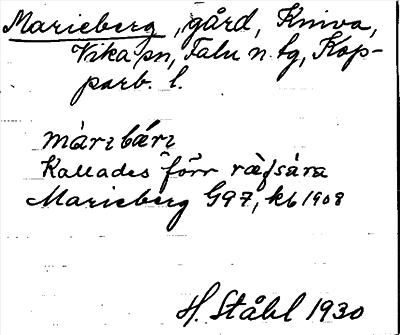 Marieberg, gård, Kniva,
Vika sn, Falu n. tg, Kop-
parb. l.
màrɩbǽrɩ
Kallades förr
Marieberg G97, kb 1908
H. Ståhl 1930